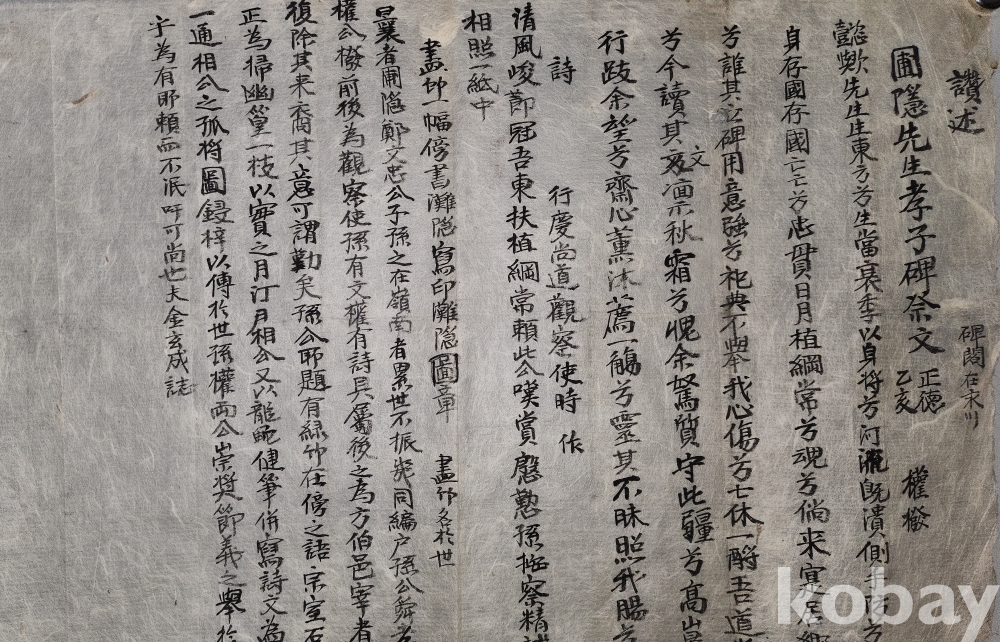 讚述
圃隱先生孝子碑祭文 正德乙亥 權橃
碑閣在永川
懿歟先生生東方兮生當衰季以身將兮河流旣潰側手防兮
身存國存國亡亡兮忠貫日月植綱常兮魂兮倘来寔
兮誰其立碑用意強兮祀典不擧我心傷兮亡休一酹吾道
兮今讀其文凜乎秋霜兮愧余駑質守此疆兮高
行跂余望兮齋心薰沐薦一觴兮靈其不昧照我膓兮
詩 行慶尚道觀察使時作
清風峻節冠吾東扶植綱常頼此公嘆賞慇懃孫
相照一紙中
畵 一幅傍書灘隐寫印灘隐圖章 畵 名於世
曩者圃隐鄭文忠公子孫之在嶺南者累世不振 同編户孫公舜
權公橃前後為觀察使孫有文權有詩具屬後之為方伯邑宰者
復除其来裔其意可謂勤矣孫公所題有緑竹在傍之語宗室石
正為掃幽篁一枝以實之月汀尹相公又以龍 健筆併寫詩文為
一通相公之孤将圖鋟梓以傳於世孫權兩公崇奬節義之擧於
乎為有所頼而不泯吁可尚也夫金玄成誌
kobay